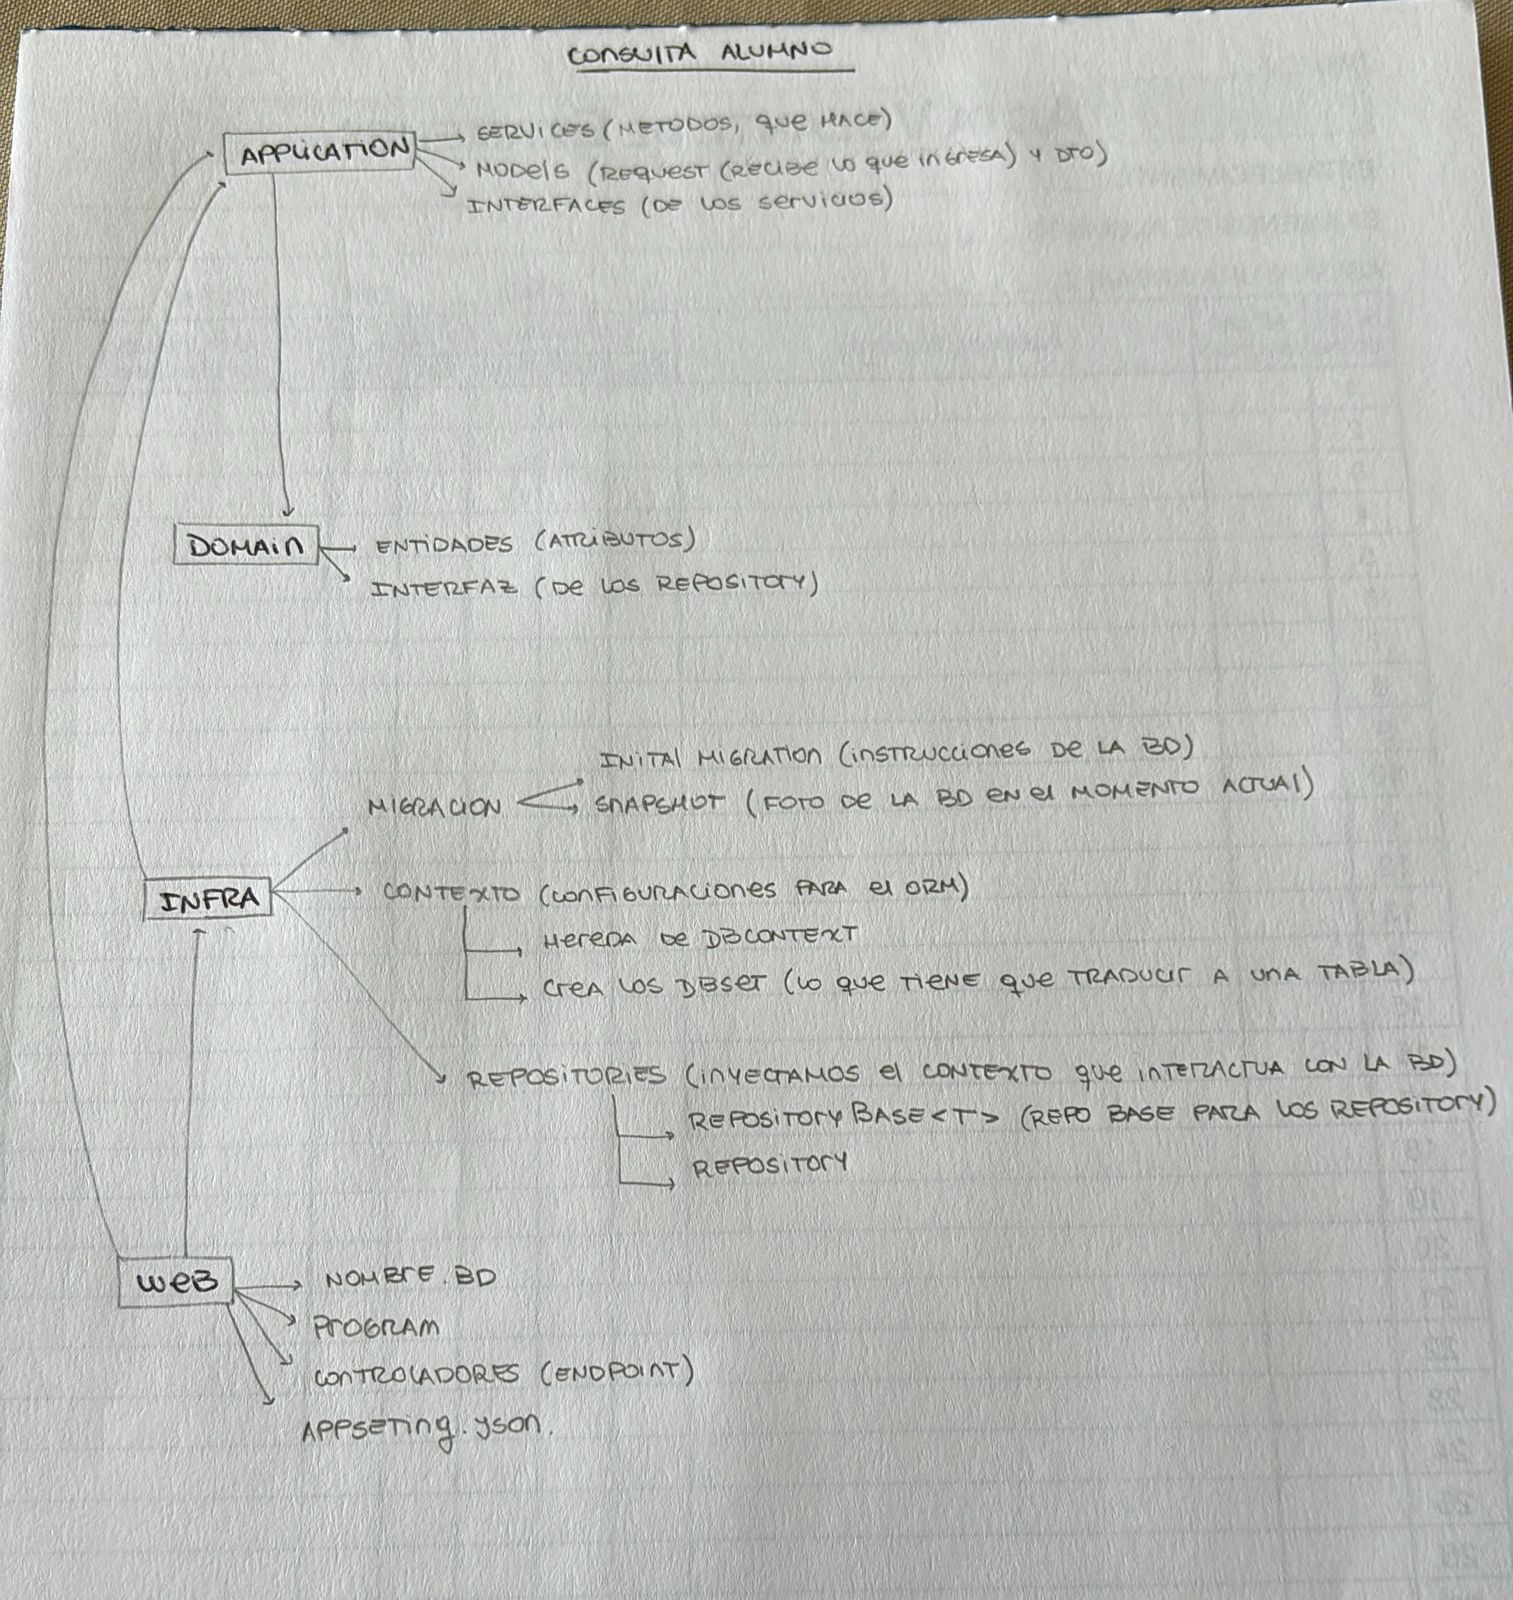 CONSUlTA ALUMNO
APPLICATION
SERVICES (METODOS, QUE HACE)
MODElS (REQUEST (RECIBE LO QUE INGRESA) Y DTO)
INTERFACES (DE LOS SERVICIOS)
DOMAIN
ENTIDADES (ATRIBUTOS)
INTERFAZ (DE LOS REPOSITORY)
INITAl MIGRATION (INSTRUCCIONES DE LA BD)
MIGRACION
SNAPSHOT (FOTO DE LA BD EN El MOMENTO ACTUAl)
INFRA
CONTEXTO (CONFIGURACIONES PARA El ORM)
HEREDA DE DBCONTEXT
CREA LOS DBSET (LO QUE TIENE QUE TRADUCIR A UNA TABLA)
REPOSITORIES (INYECTAMOS El CONTEXTO QUE INTERACTUA CON LA BD)
REPOSITORY BASE<T> (REPO BASE PARA LOS REPOSITORY)
REPOSITORY
WEB
NOMBRE.BD
PROGRAM
CONTROLADORES (ENDPOINT)
APPSETING.yson.